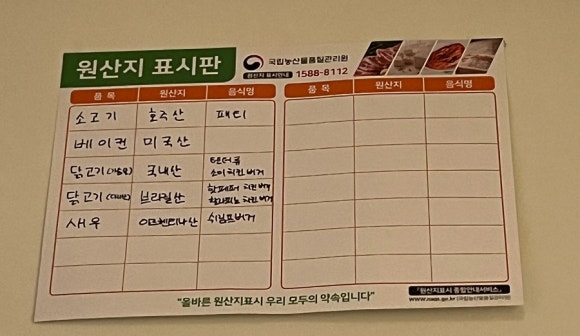 원산지 표시판
국립농산물품질관리원
원산지 표시안내 1588-8112
품 목 원산지 음식명
품 목 원산지 음식명
소고기 호주산 패티
베이컨 미국산
닭고기 국내산
소이치킨버거
닭고기 브라질산
치킨버거
치킨버거
새우 아르헨티나산 쉬림프버거
"올바른 원산지표시 우리 모두의 약속입니다"
「원산지표시 종합안내서비스」
www.naqs.go.kr (국립농산물품질관리원)